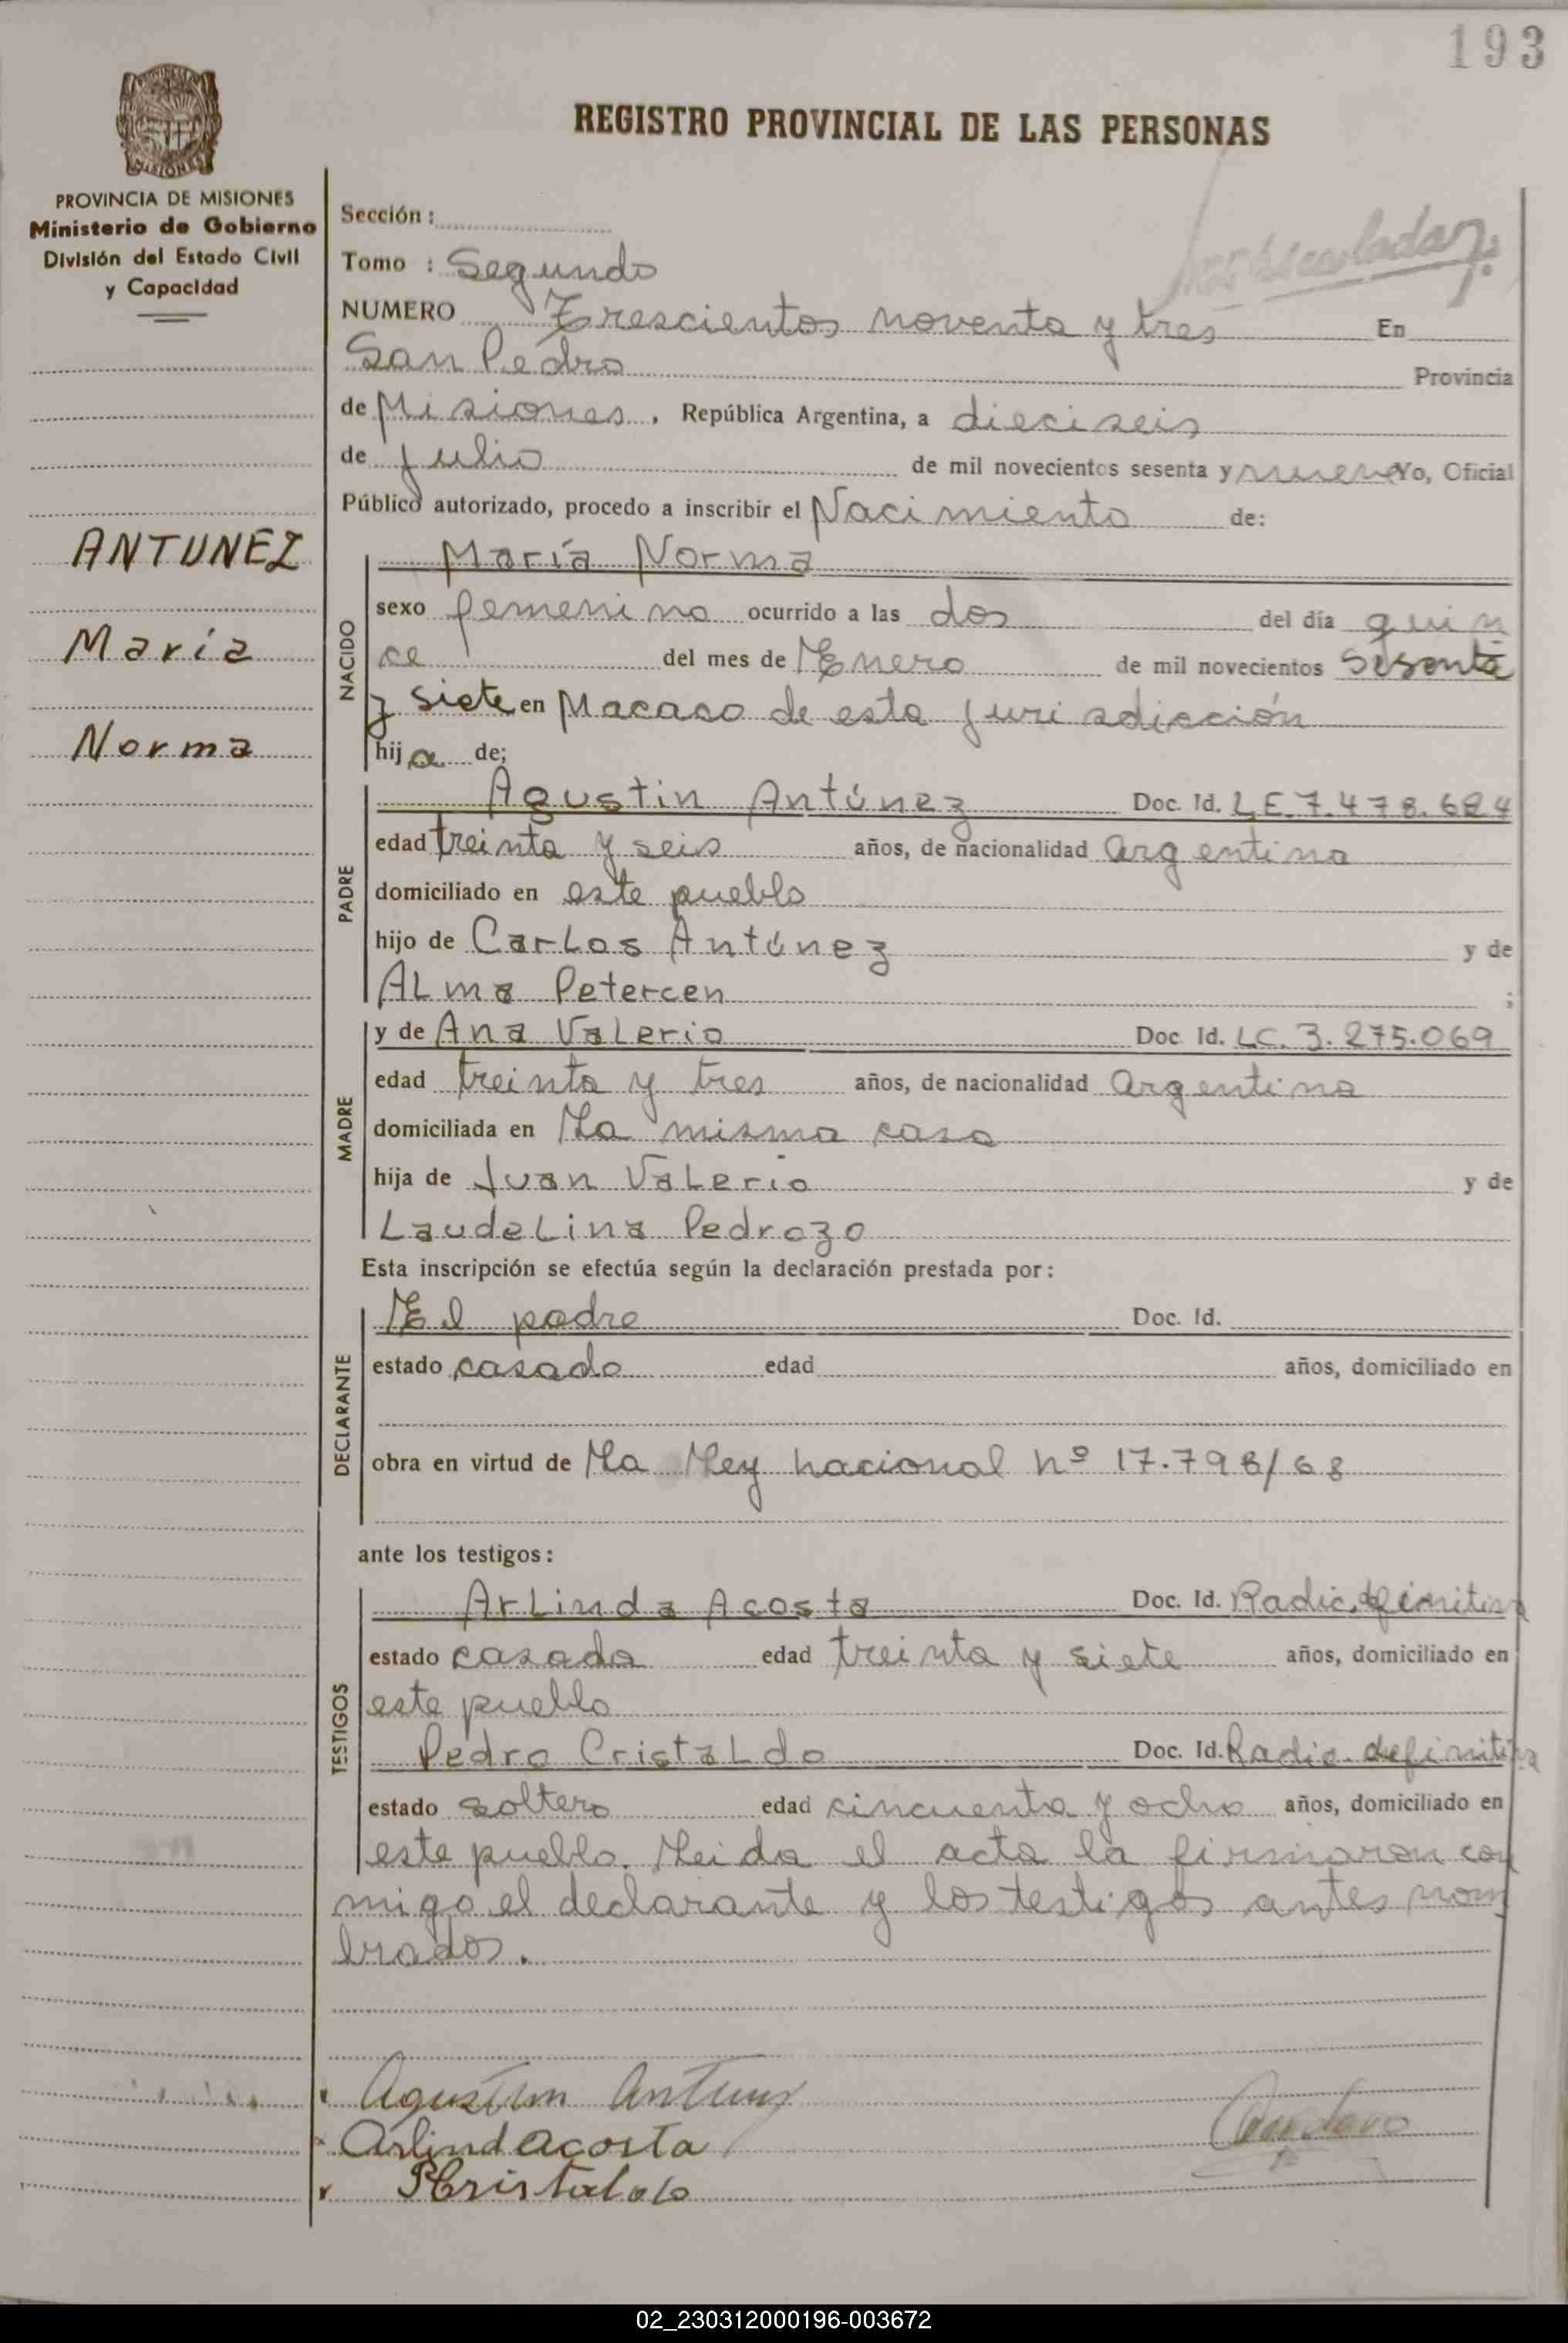 193
REGISTRO PROVINCIAL DE LAS PERSONAS
PROVINCIA DE MISIONES
Ministerio de Gobierno
División del Estado Civil
y Capacidad
ANTUNEZ
María
Norma
Sección:
Tomo : Segundo
NUMERO Trescientos noventa y tres En
San Pedro Provincia
de Misiones, República Argentina, a dieciseis
de Julio de mil novecientos sesenta y nueve Yo, Oficial
Público autorizado, procedo a inscribir el Nacimiento de:
NACIDO
María Norma
sexo femenino ocurrido a las dos del día quin
ce del mes de Enero de mil novecientos sesenta
y siete en Macaco de esta Jurisdicción
hija de;
PADRE
Agustin Antúnez Doc. Id. LE.7.478.684
edad treinta y seis años, de nacionalidad argentina
domiciliado en este pueblo
hijo de Carlos Antúnez y de
Alma Petercen ;
MADRE
y de Ana Valerio Doc. Id. LC. 3.275.069
edad treinta y tres años, de nacionalidad argentina
domiciliada en La misma casa
hija de Juan Valerio y de
Laudelina Pedrozo
Esta inscripción se efectúa según la declaración prestada por:
DECLARANTE
El padre Doc. Id.
estado casado edad años, domiciliado en
obra en virtud de La Ley nacional nº 17.798/68
ante los testigos:
TESTIGOS
Arlinda Acosta Doc. Id. Radic. definitiva
estado casada edad treinta y siete años, domiciliado en
este pueblo
Pedro Cristaldo Doc. Id. Radic. definitiva
estado soltero edad cincuenta y ocho años, domiciliado en
este pueblo. Leida el acta la firmaron con
migo el declarante y los testigos antes nom
brados.
Agustin Antunez
Arlinda Acosta
PCristaldo
02_230312000196-003672